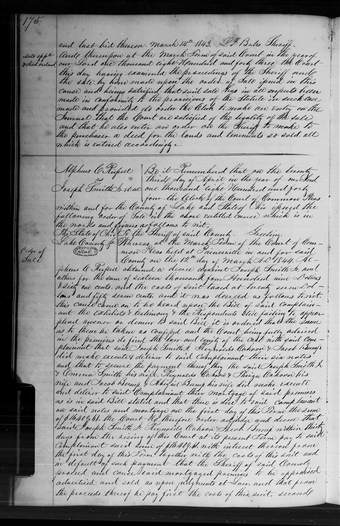 175
and last bid therein March 18th 1843.
And thereupon at the March Term of said Court in the year of
our Lord one thousand eight Hundred and forty three the Court
this day having examined the proceedings of the Sheriff under
the sale by him made upon the order of Sale issued in this
cause and being satisfied that said sale has in all respects been
made in conformity to the provisions of the Statute in such case
made and provided it orders the Clerk to make an entry on the
Journal that the Court are satisfied of the legality of the sale
and that he also enter an order that the Sheriff to make to
the purchaser a deed for the lands and tenements so sold all
which is entered accordingly
Be it Remembered that on the twenty
third day of April in the year of our Lord
Joseph Smith et al one thousand eight Hundred and forty
four the Clerk of the Court of Common Pleas
within and for the County of Lake and State of Ohio issued the
following order of Sale in the above entitled cause which is in
the words and figures as follows to wit,
The State of Ohio To the Sheriff of said County Greeting
Order of
Sale
Lake County Whereas at the March Term of the Court of Com-
mon Pleas held at Painesville in and for said
County on the 18th of March A.D. 1844
obtained a decree against Joseph Smith Jr. and
others for the sum of
and the costs of suit taxed at twenty seven Dol-
lars and fifty seven cents and it was decreed as follows to wit
this cause came on to be heard upon the Bill of said Complain-
ant the exhibits & testimony & the Respondents
plead answer or demur to said Bill it is ordered that the same
as to them be taken as confessed and the Court being fully advised
in the premises do find the law and equity of the case with said Com-
plainant that said Joseph Smith Jr Reynolds Cahoon & Jacob Bump
did make execute & deliver to said Complainant their six notes
and that to secure the payment thereof they the said Joseph Smith Jr
& Emma Smith his wife Reynolds Cahoon & Thirza Cahoon his
wife and Jacob Bump & Abigail Bump his wife did make execute
and deliver to said Complainant their mortgage of said premises
as is in said Bill stated and that there is due to said Complainant
on said notes and mortgage on the first day of this Term the sum
the Court do therefore order adjudge and decree that
said Joseph Smith Jr Reynolds Cahoon & Jacob Bump within thirty
days from the rising of this Court at its present Term pay to said
Complainant said sum of with interest thereon from
the first day of this Term together with the costs of this suit and
in default of such payment that the Sheriff of said County
proceed and cause said mortgaged premises to be appraised
advertised and sold as upon judgments at Law and that from
the proceeds thereof he pay first the costs of this suit, secondly